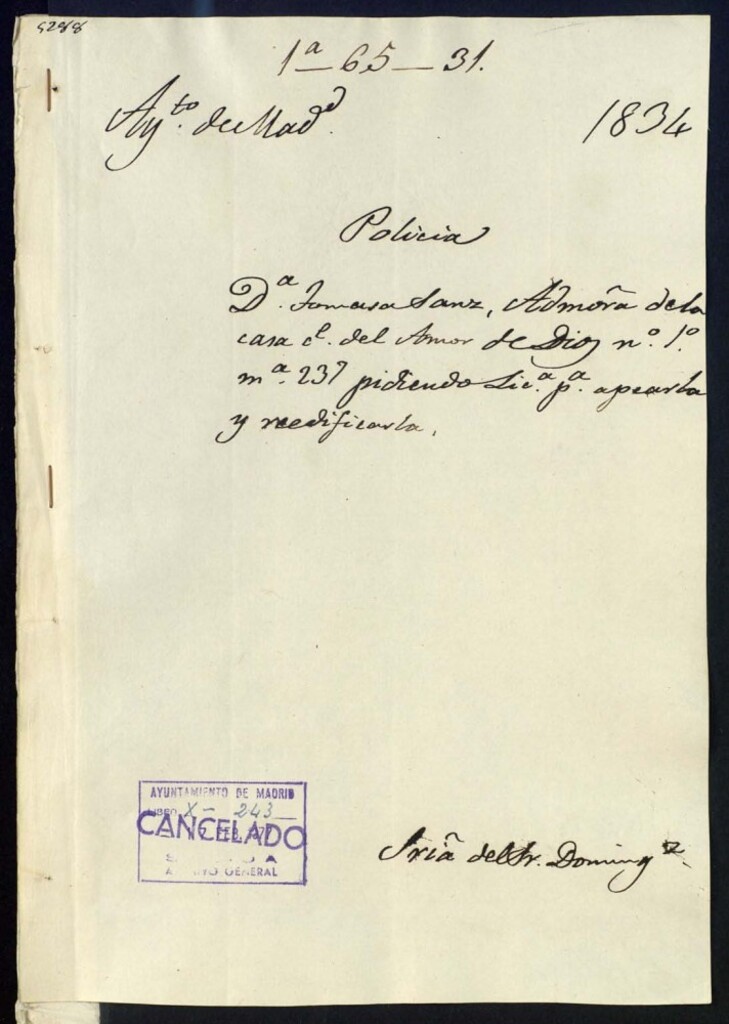 5288
1ª-65-31.
Ay.to de Mad.d
1834
Policia
D.ª Tomasa Sanz, Admorã de la
casa c.l del Amor de Dios n.º 1.º
m.ª 237 pidiendo Lic.ª p.ª apearla
y reedificarla.
AYUNTAMIENTO DE MADRID
X- 243
CANCELADO
GENERAL
Sriã del Sr. Doming.z